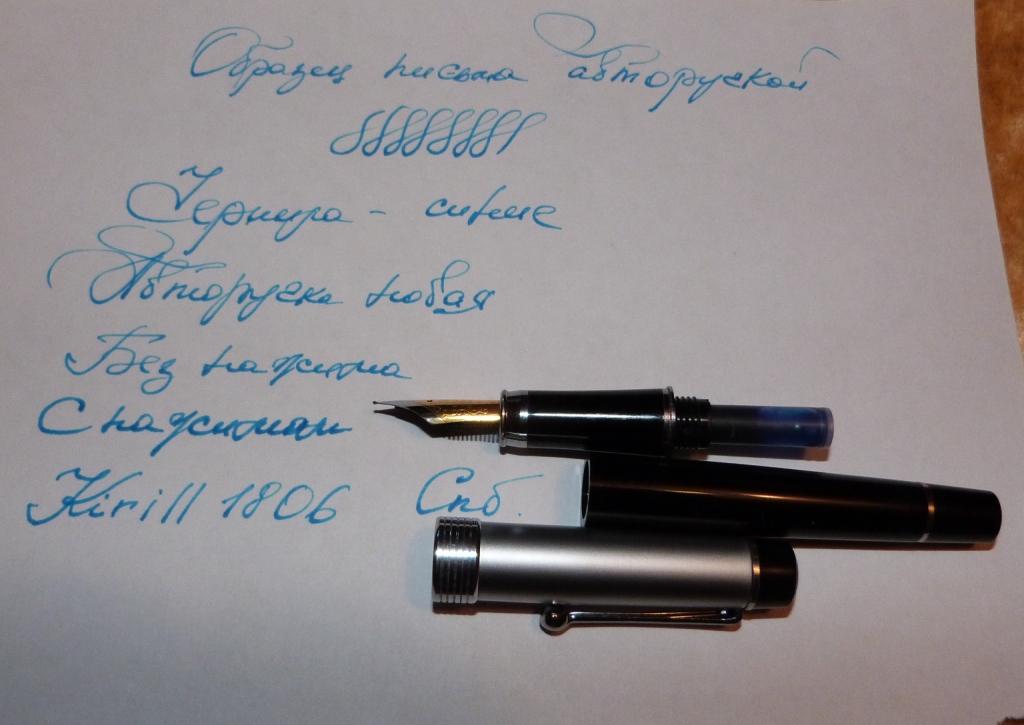 Образец письма авторучкой
Чернила - синие
Авторучка новая
Без нажима
С нажимам
Kirill 1806 Спб.